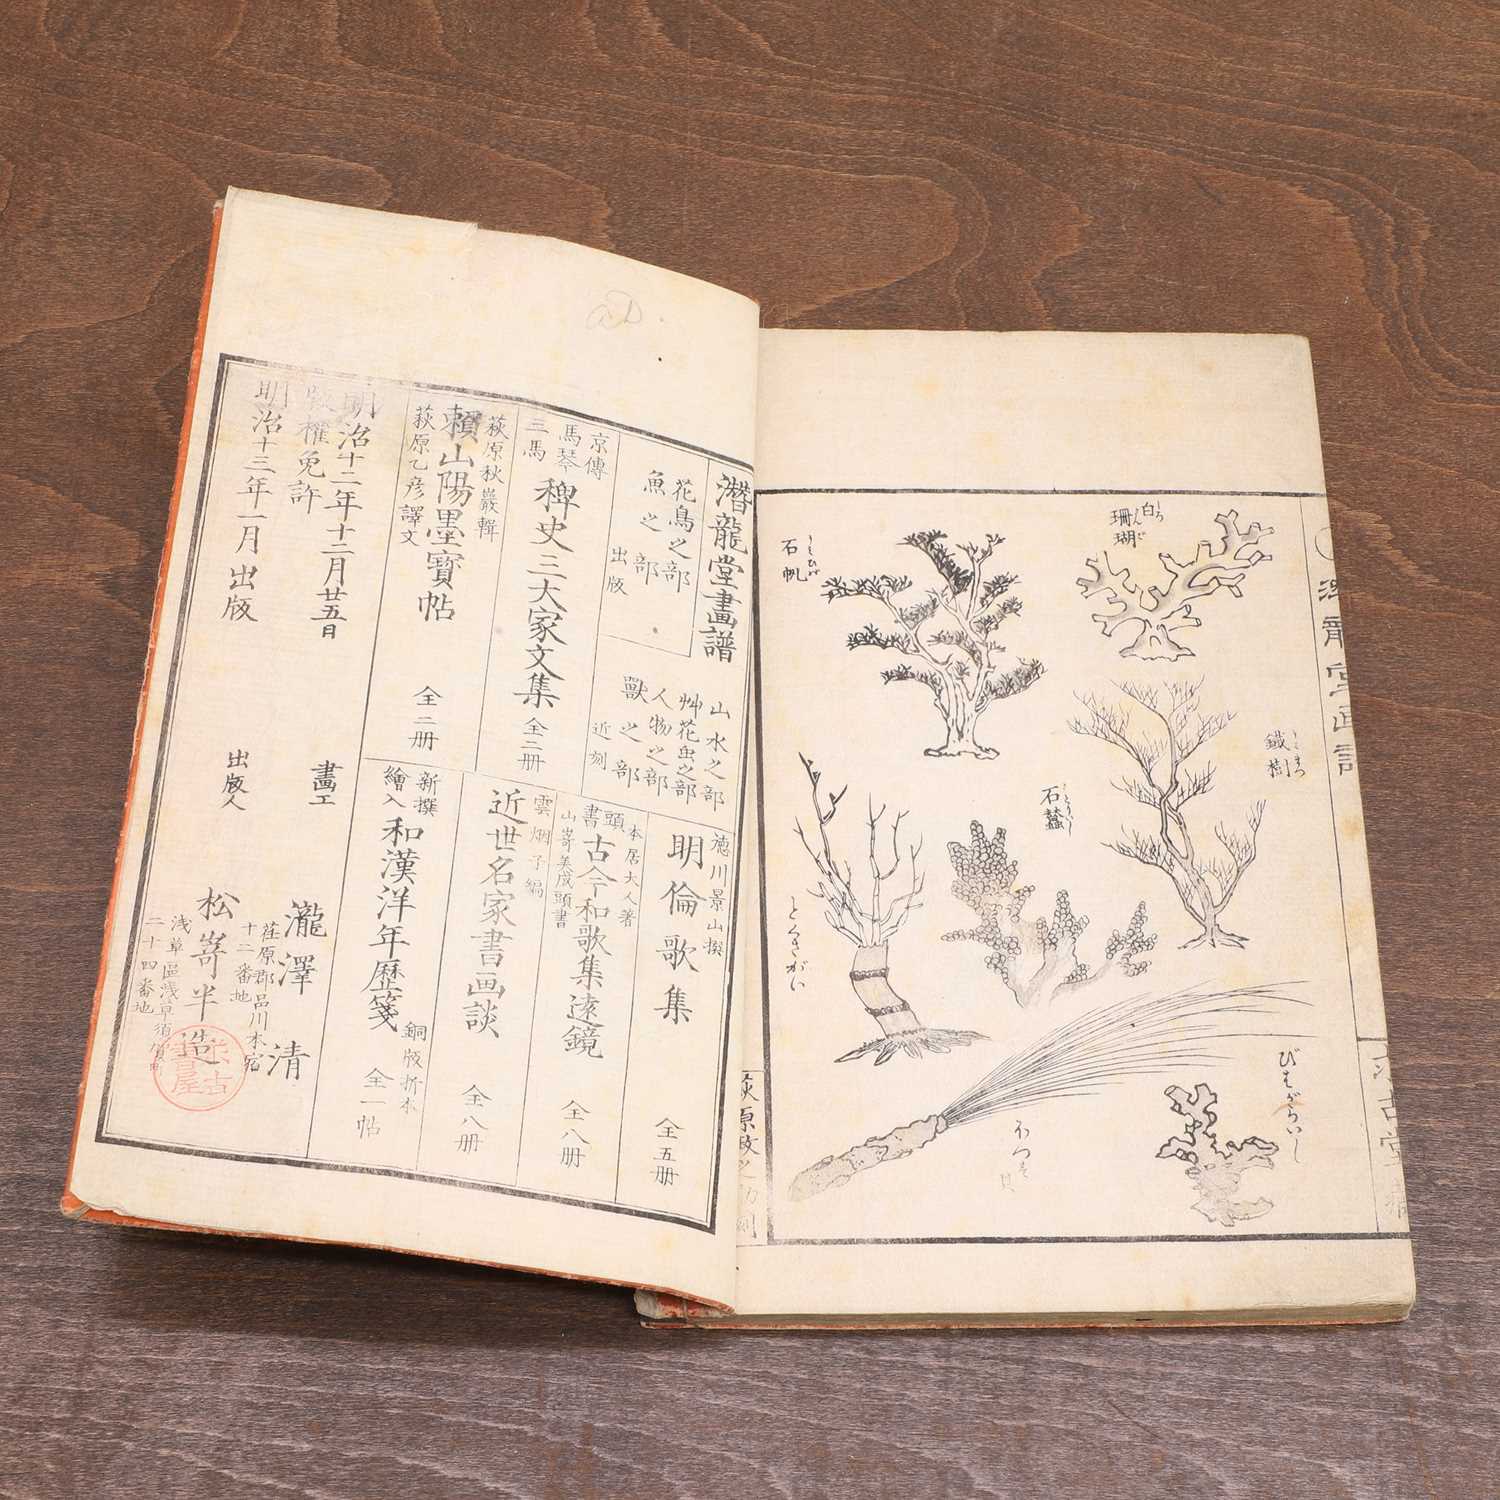 潛龍堂畫譜
白
珊瑚
石帆
鐵樹
石蠶
とくさがい
びはがらいし
潛龍堂畫譜
花鳥之部
魚之部
出版
山水之部
艸花虫之部
人物之部
獸之部
近刻
京傳
馬琴
三馬
稗史三大家文集
全二册
萩原秋巖輯
賴山陽墨寶帖
萩原乙彦譯文
全二册
徳川景山撰
明倫歌集
全五册
本居大人著
頭書
古今和歌集遠鏡
山嵜美成頭書
全八册
雲烟子編
近世名家書画談
全八册
新撰
繪入
和漢洋年歴箋
銅版折本
全一帖
明治十二年十二月廿五日
版權免許
明治十三年一月出版
畫工
瀧澤清
荏原郡品川本宿
十二番地
出版人
松嵜半造
淺草區淺草須賀町
二十四番地